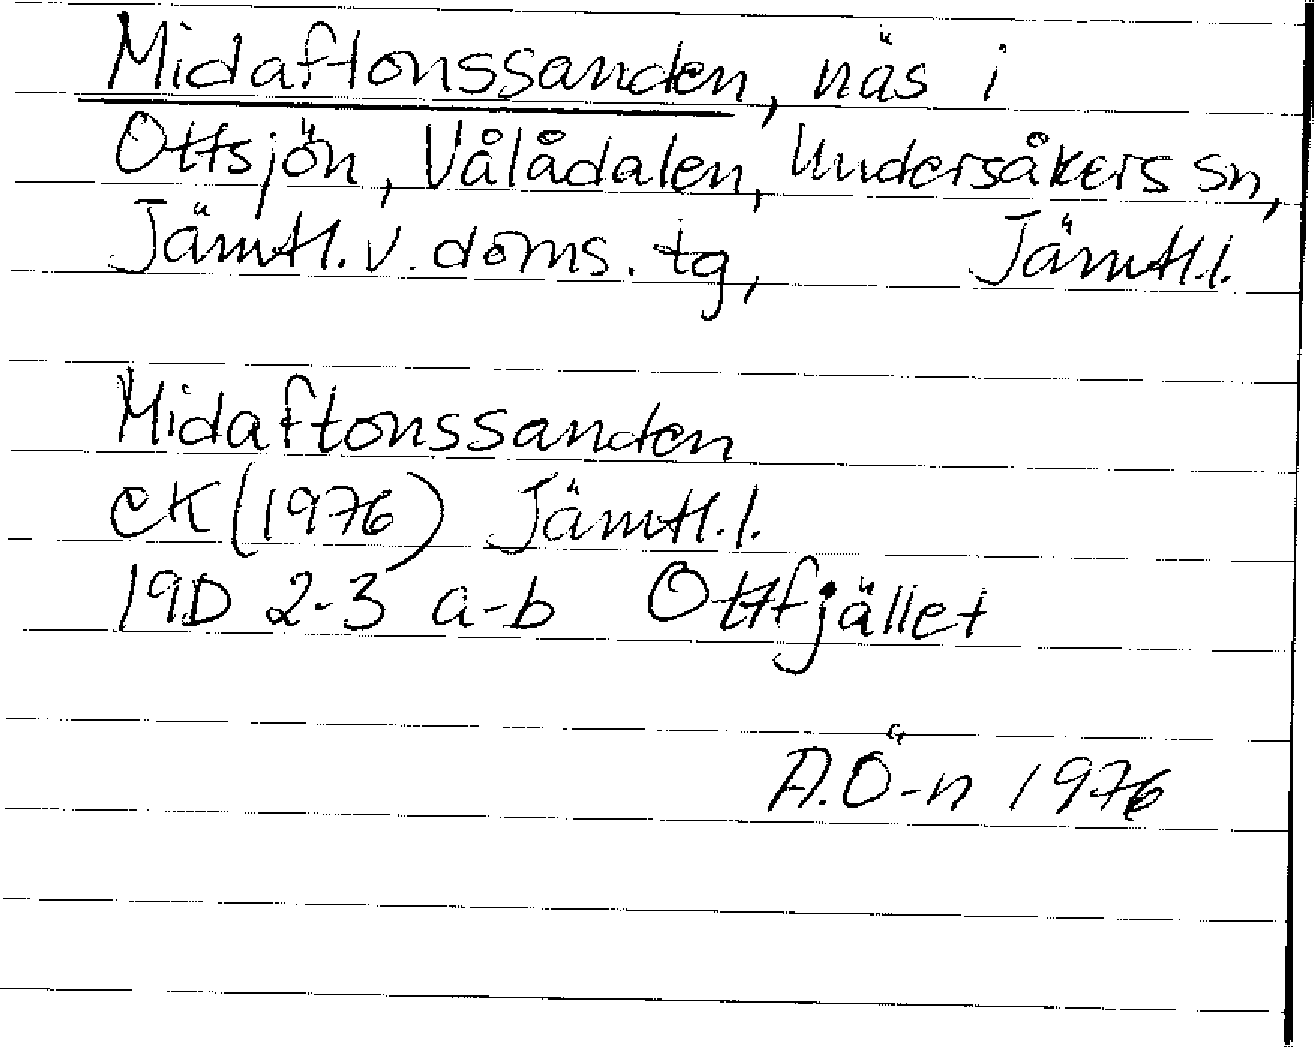 Midaftonssanden, näs i
Ottsjön, Vålådalen, Undersåkers sn,
Jämtl. v. doms. tg, Jämtl.l.
Midaftonssanden
EK (1976) Jämtl.l.
19D 2-3 a-b Ottfjället
A.Ö-n 1976